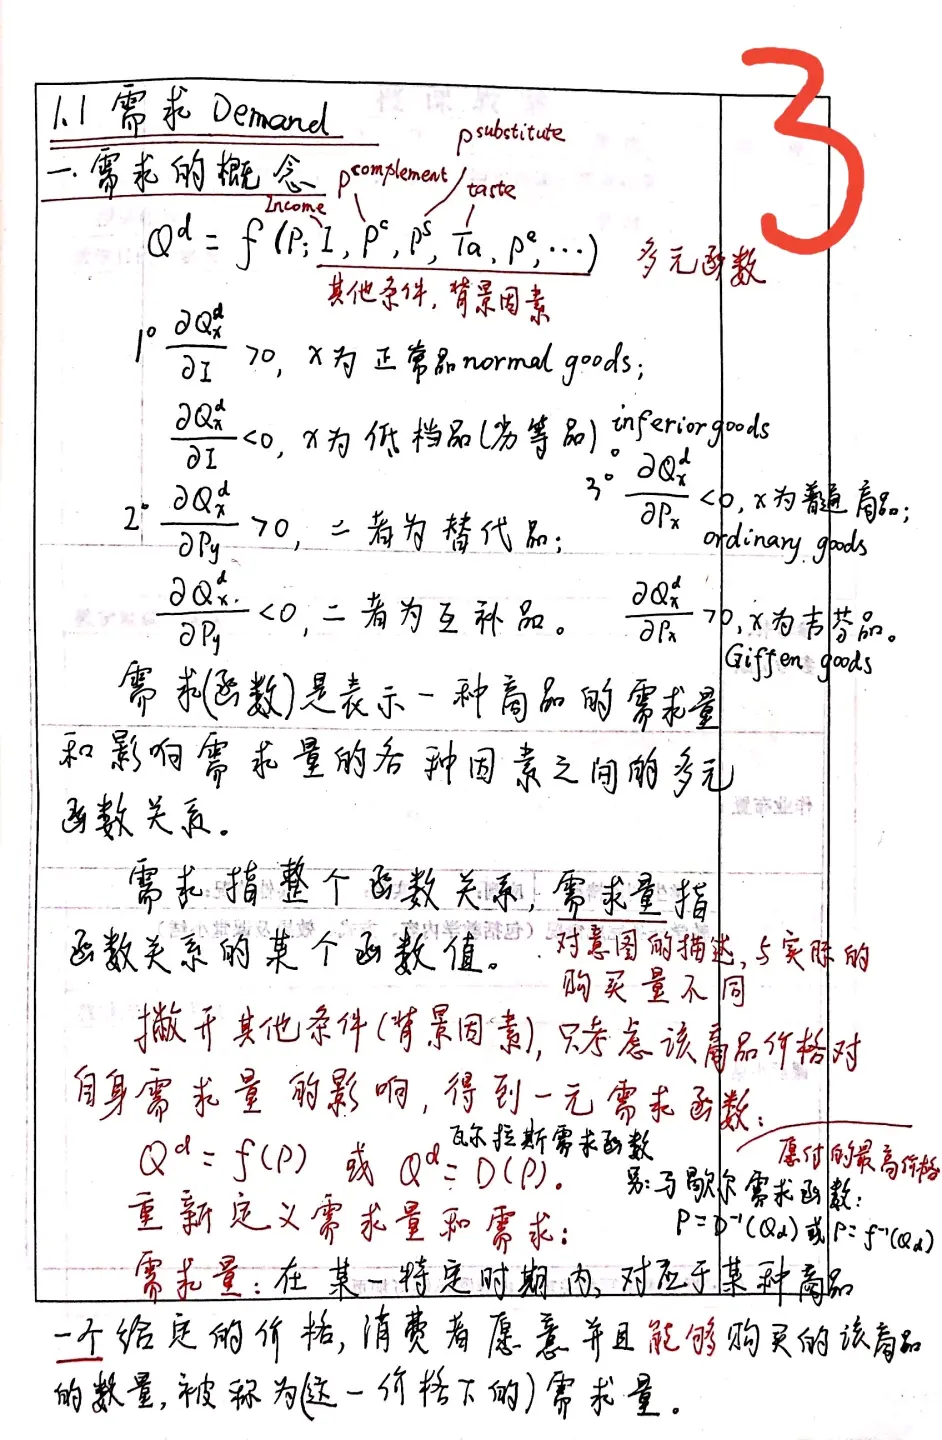 3
1.1 需求 Demand
一.需求的概念
P substitute
P complement
taste
Income
Qᵈ = f(P; I, Pᶜ, Pˢ, Ta, Pᵉ, …)
多元函数
其他条件,背景因素
1° ∂Qₓᵈ/∂I >0, x为正常品normal goods;
∂Qₓᵈ/∂I <0, x为低档品(劣等品) inferior goods
2° ∂Qₓᵈ/∂Py >0, 二者为替代品;
∂Qₓᵈ/∂Py <0, 二者为互补品。
3° ∂Qₓᵈ/∂Pₓ <0, x为普通商品;
ordinary goods
∂Qₓᵈ/∂Pₓ >0, x为吉芬品。
Giffen goods
需求(函数)是表示一种商品的需求量
和影响需求量的各种因素之间的多元
函数关系。
需求指整个函数关系,需求量指
函数关系的某个函数值。
对意图的描述,与实际的
购买量不同
撇开其他条件(背景因素),只考虑该商品价格对
自身需求量的影响,得到一元需求函数:
瓦尔拉斯需求函数
Qᵈ = f(P) 或 Qᵈ = D(P).
愿付的最高价格
另:马歇尔需求函数:
P=D⁻¹(Qd) 或 P=f⁻¹(Qd)
重新定义需求量和需求:
需求量:在某一特定时期内,对应于某种商品
一个给定的价格,消费者愿意并且能够购买的该商品
的数量,被称为(这一价格下的)需求量。